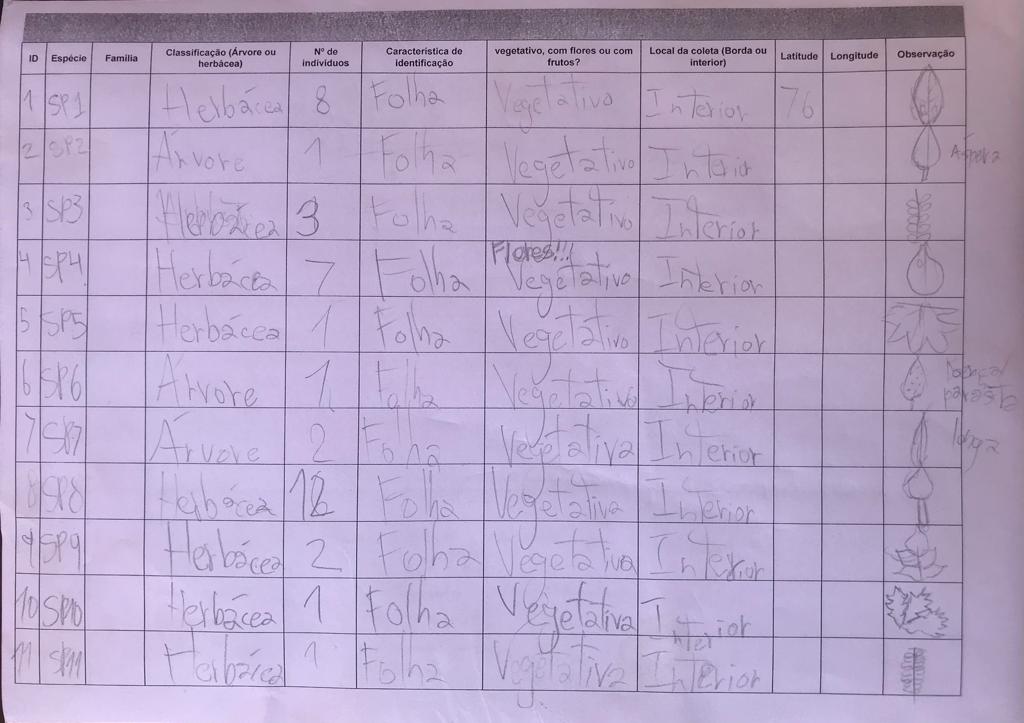 ID Espécie Familia Classificação (Árvore ou herbácea) Nº de indivíduos Característica de identificação vegetativo, com flores ou com frutos? Local da coleta (Borda ou interior) Latitude Longitude Observação
1 SP1 Herbácea 8 Folha Vegetativo Interior 76
2 SP2 Árvore 1 Folha Vegetativo Interior Áspera
3 SP3 Herbácea 3 Folha Vegetativo Interior
Flores!!!
4 SP4 Herbácea 7 Folha Vegetativo Interior
5 SP5 Herbácea 1 Folha Vegetativo Interior
6 SP6 Árvore 1 Folha Vegetativo Interior
7 SP7 Árvore 2 Folha Vegetativa Interior
8 SP8 Herbácea 12 Folha Vegetativa Interior
9 SP9 Herbácea 2 Folha Vegetativa Interior
10 SP10 Herbácea 1 Folha Vegetativa Interior
11 SP11 Herbácea 1 Folha Vegetativa Interior